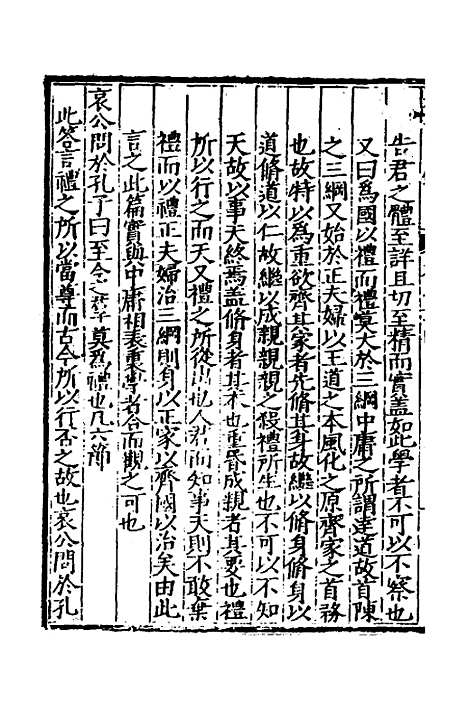 告君之體至詳且切至精而實蓋如此學者不可以不察也
又曰為國以禮而禮莫大於三綱中庸之所謂達道故首陳
之三綱又始於正夫婦以王道之本風化之原齊家之首務
也故特以為重欲齊其家者先脩其身故繼以脩身脩身以
道脩道以仁故繼以成親親親之殺禮所生也不可以不知
天故以事天終焉蓋脩身者其本也重昏成親者其要也禮
所以行之而天又禮之所從出也人君而知事天則不敢棄
禮而以禮正夫婦治三綱則身以正家以齊國以治矣由此
言之此篇實與中庸相表裏學者合而觀之可也
哀公問於孔子曰至今之君子莫為禮也凡六節
此答言禮之所以當尊而古今所以行否之故也哀公問於孔